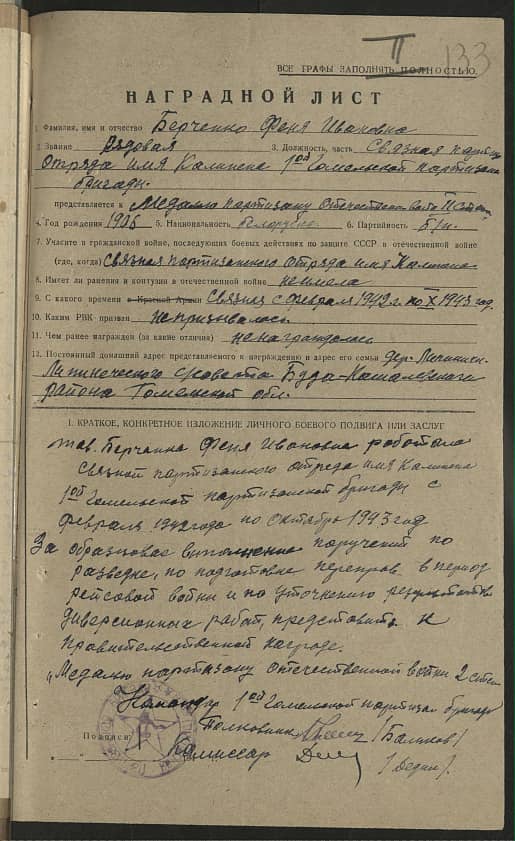 II 133
ВСЕ ГРАФЫ ЗАПОЛНЯТЬ ПОЛНОСТЬЮ.
НАГРАДНОЙ ЛИСТ
1. Фамилия, имя и отчество Берченко Феня Ивановна
2. Звание Рядовая 3. Должность, часть Связная
Отряда имя Калинена 1ой Гомельской партизанс
бригады.
представляется к Медалю партизану Отечественной II степ
4. Год рождения 1906 5. Национальность белоруска 6. Партийность б/п.
7. Участие в гражданской войне, последующих боевых действиях по защите СССР в отечественной войне
(где, когда) связная партизанского отряда имя Калинена
8. Имеет ли ранения и контузии в отечественной войне не имела
9. С какого времени в Красной Армии Связная с феврал 1942 г. по X 1943 год.
10. Каким РВК призван не призывалась
11. Чем ранее награжден (за какие отличия) не награждалась
12. Постоянный домашний адрес представляемого к награждению и адрес его семьи дер.
с/совета Буда-Кошелевского
района Гомельской обл.
I. КРАТКОЕ, КОНКРЕТНОЕ ИЗЛОЖЕНИЕ ЛИЧНОГО БОЕВОГО ПОДВИГА ИЛИ ЗАСЛУГ
тов. Берченка Феня Ивановна работала
связной партизанского отреда имя Калинена
1ой Гомельской партизанской бригады с
февраля 1942 года по Октябрь 1943 год
За образцовое выполнение поручений по
разведке, по подготовке переправ в период
рейсовой войны и по уточнению результатов
диверсионных работ, представить к
правительсственной награде.
"Медалю партизану отечественной войны 2 степ
Командир 1ой Гомельской партизан бригады
Полковник /Баликов/
Подписи
Комиссар /Дедик/.